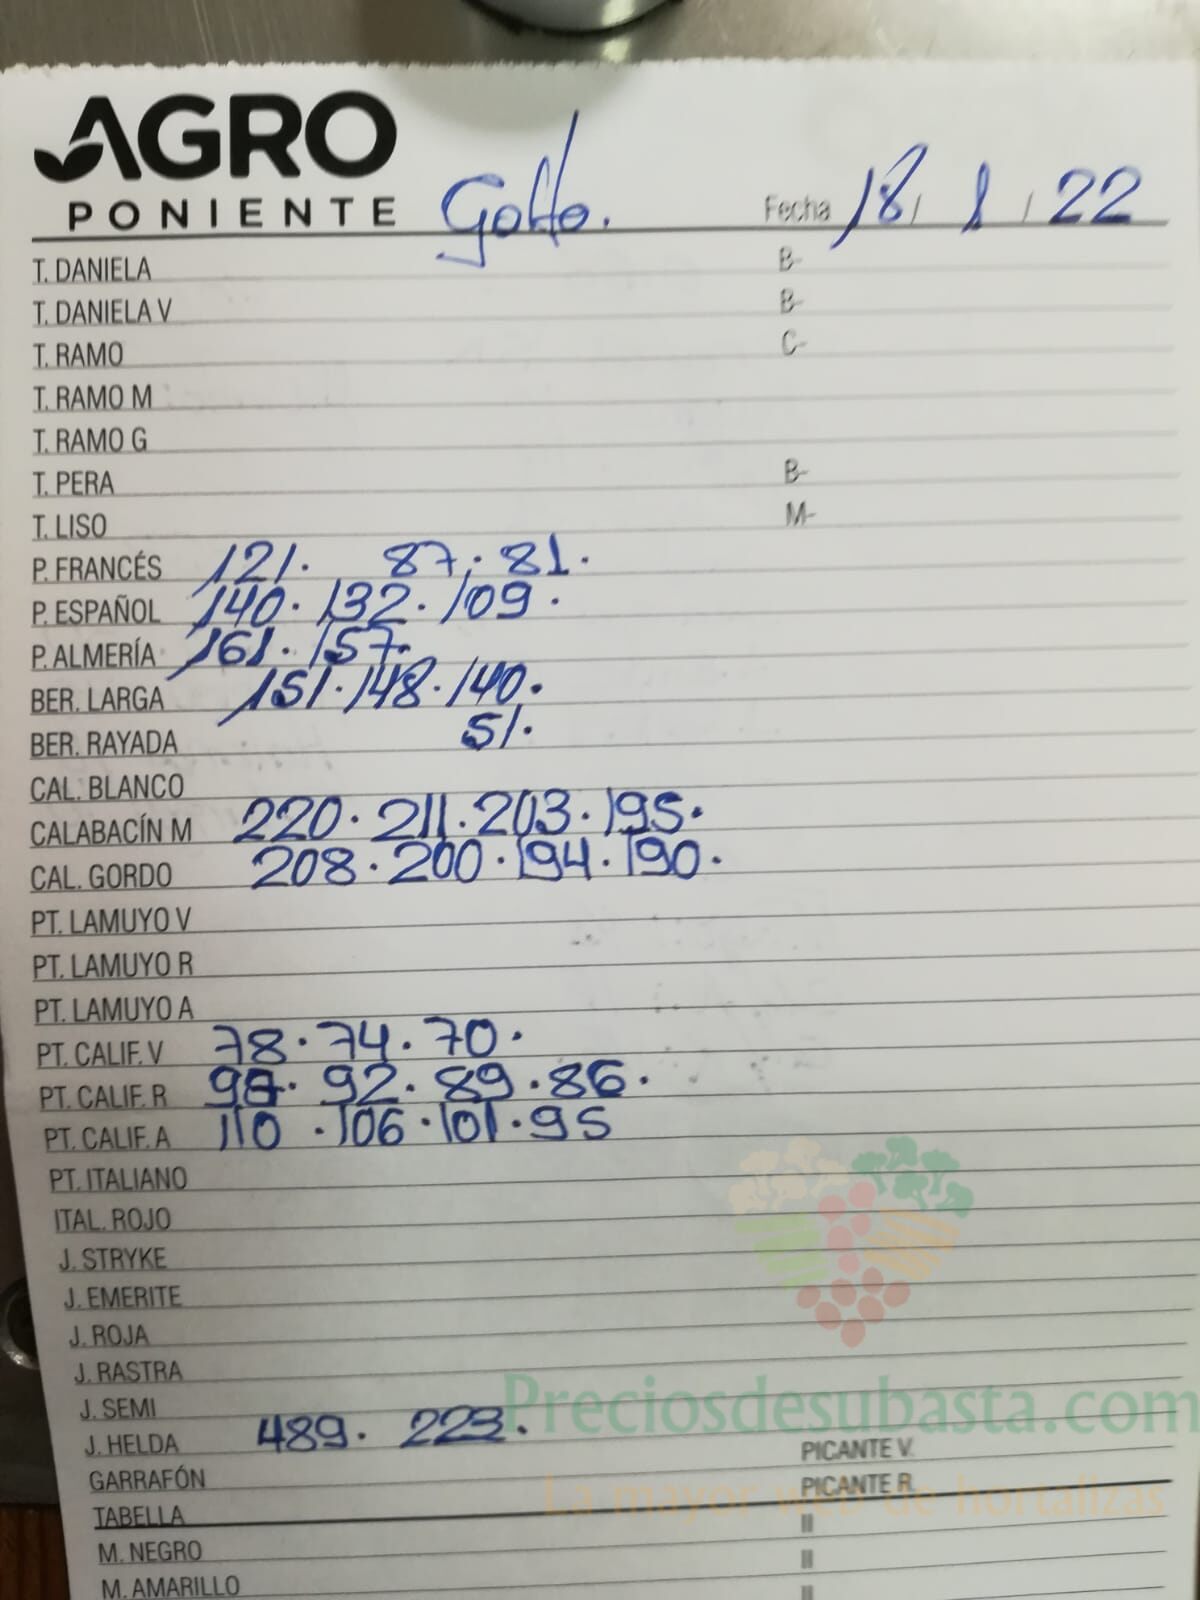 AGRO
PONIENTE Golfo. Fecha 18/ 1 / 22
T. DANIELA B-
T. DANIELA V B-
T. RAMO C-
T. RAMO M
T. RAMO G
T. PERA B-
T. LISO M-
P. FRANCÉS 121. 87. 81.
P. ESPAÑOL 140. 132. 109.
P. ALMERÍA 161. 157.
BER. LARGA 151. 148. 140.
BER. RAYADA 51.
CAL. BLANCO
CALABACÍN M 220. 211. 203. 195.
CAL. GORDO 208. 200. 194. 190.
PT. LAMUYO V
PT. LAMUYO R
PT. LAMUYO A
PT. CALIF. V 78. 74. 70.
PT. CALIF. R 92. 89. 86.
PT. CALIF. A 110. 106. 101. 95
PT. ITALIANO
ITAL. ROJO
J. STRYKE
J. EMERITE
J. ROJA
J. RASTRA
J. SEMI
J. HELDA 489. 223. PICANTE V.
GARRAFÓN PICANTE R.
TABELLA II
M. NEGRO II
M. AMARILLO II
Preciosdesubasta.com
La mayor web de hortalizas